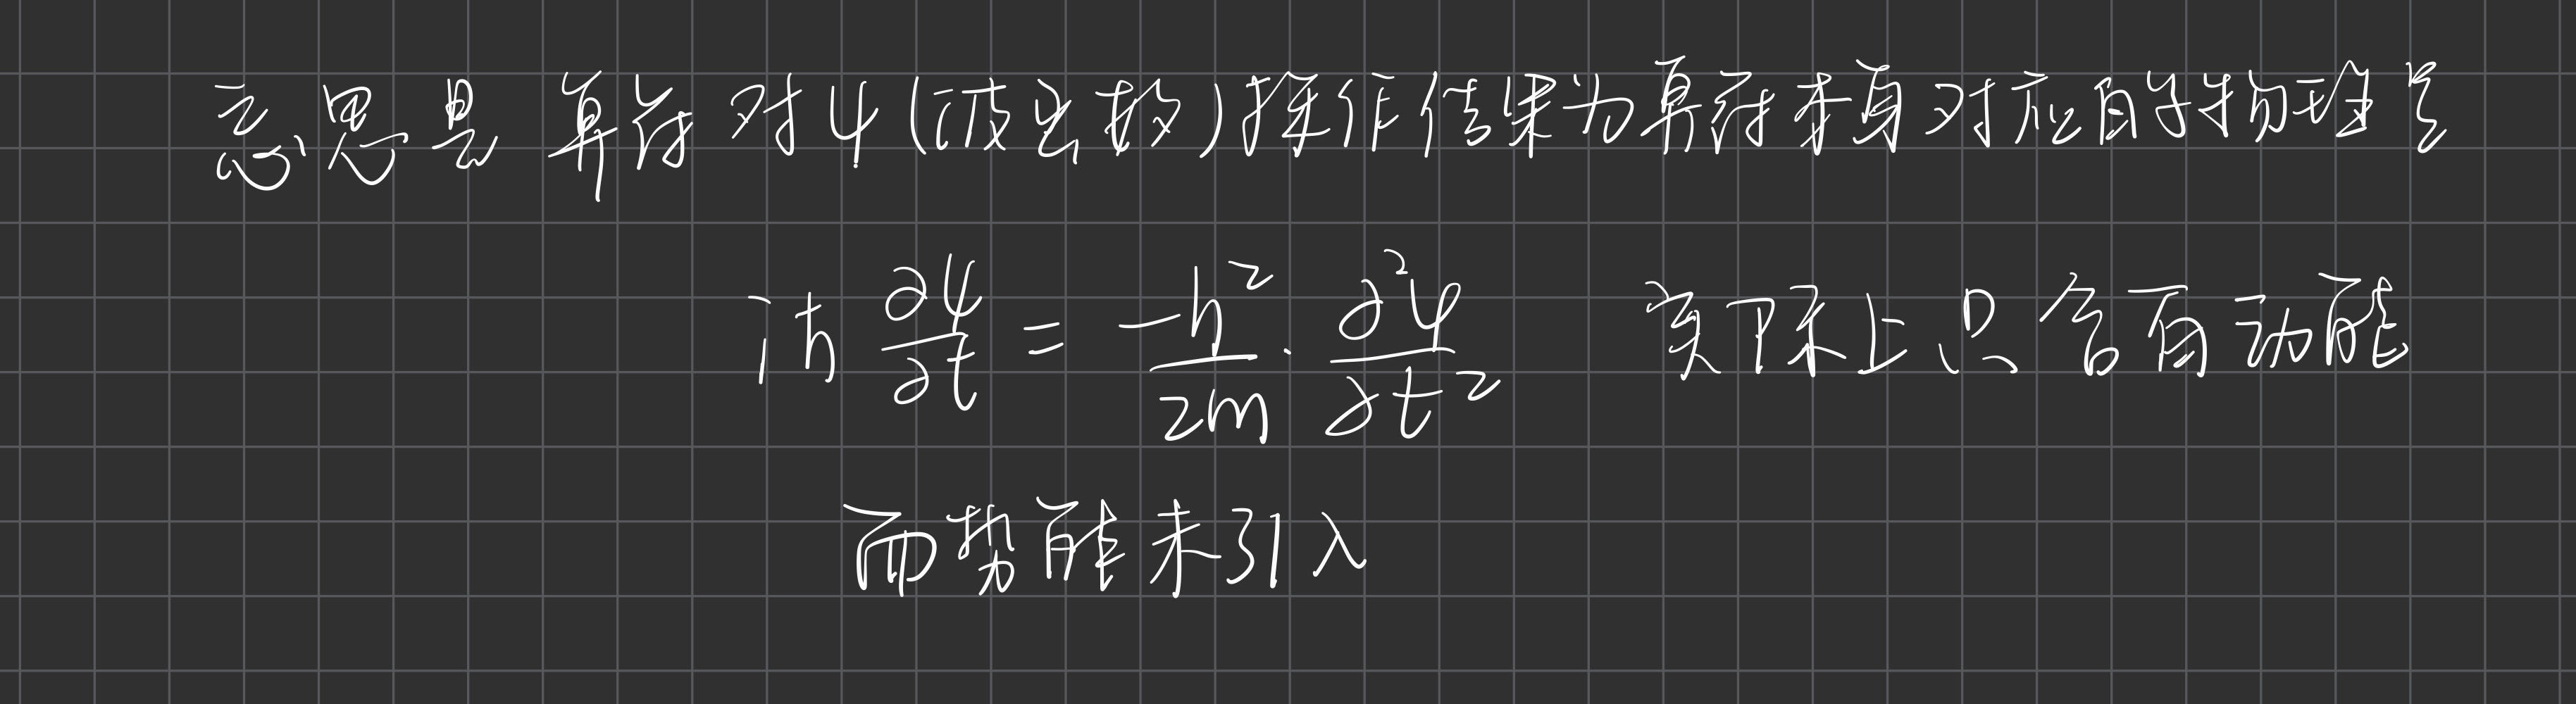 意思是 算符对ψ(波函数)操作结果为算符本身对应的物理量
iħ ∂ψ/∂t = -ħ²/2m · ∂²ψ/∂t² 实际上只含有动能
而势能未引入